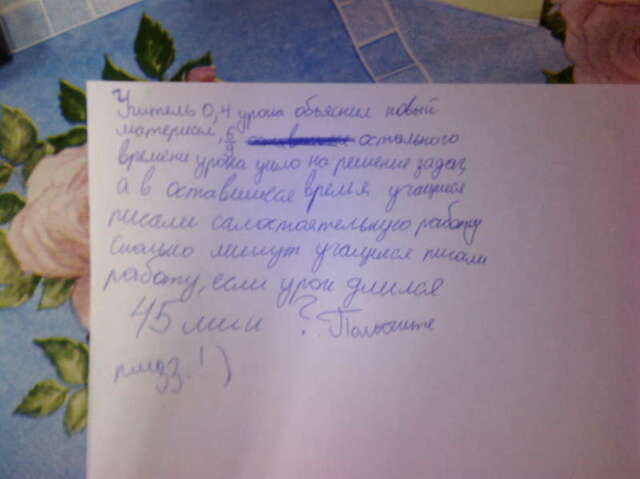 Учитель 0,4 урока объяснял новый
материал, 5/9 остального
времени урока ушло на решение задач,
а в оставшееся время учащиеся
писали самостоятельную работу
Сколько минут учащиеся писали
работу, если урок длился
45 мин ? Помогите
!)